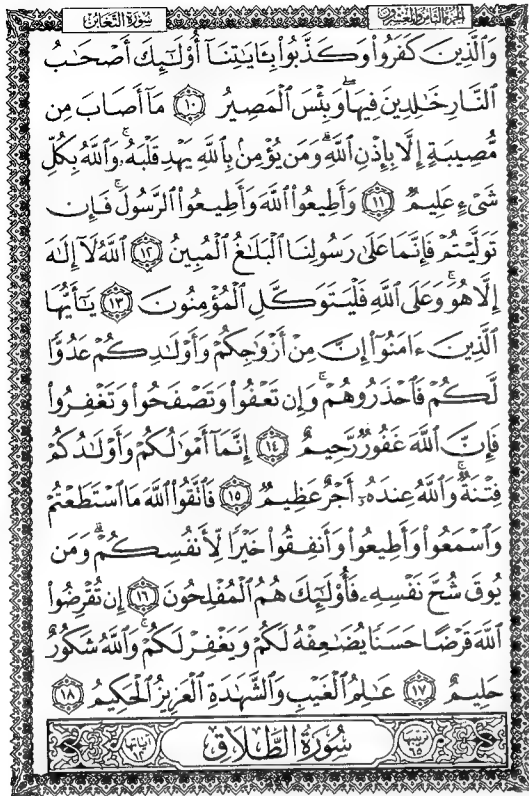 الجزء الثامن والعشرون
سورة التغابن
وَٱلَّذِينَ كَفَرُوا۟ وَكَذَّبُوا۟ بِـَٔايَـٰتِنَآ أُو۟لَـٰٓئِكَ أَصْحَـٰبُ
ٱلنَّارِ خَـٰلِدِينَ فِيهَا ۖ وَبِئْسَ ٱلْمَصِيرُ ١٠ مَآ أَصَابَ مِن
مُّصِيبَةٍ إِلَّا بِإِذْنِ ٱللَّهِ ۗ وَمَن يُؤْمِنۢ بِٱللَّهِ يَهْدِ قَلْبَهُۥ ۚ وَٱللَّهُ بِكُلِّ
شَىْءٍ عَلِيمٌ ١١ وَأَطِيعُوا۟ ٱللَّهَ وَأَطِيعُوا۟ ٱلرَّسُولَ ۚ فَإِن
تَوَلَّيْتُمْ فَإِنَّمَا عَلَىٰ رَسُولِنَا ٱلْبَلَـٰغُ ٱلْمُبِينُ ١٢ ٱللَّهُ لَآ إِلَـٰهَ
إِلَّا هُوَ ۚ وَعَلَى ٱللَّهِ فَلْيَتَوَكَّلِ ٱلْمُؤْمِنُونَ ١٣ يَـٰٓأَيُّهَا
ٱلَّذِينَ ءَامَنُوٓا۟ إِنَّ مِنْ أَزْوَٰجِكُمْ وَأَوْلَـٰدِكُمْ عَدُوًّا
لَّكُمْ فَٱحْذَرُوهُمْ ۚ وَإِن تَعْفُوا۟ وَتَصْفَحُوا۟ وَتَغْفِرُوا۟
فَإِنَّ ٱللَّهَ غَفُورٌ رَّحِيمٌ ١٤ إِنَّمَآ أَمْوَٰلُكُمْ وَأَوْلَـٰدُكُمْ
فِتْنَةٌ ۚ وَٱللَّهُ عِندَهُۥٓ أَجْرٌ عَظِيمٌ ١٥ فَٱتَّقُوا۟ ٱللَّهَ مَا ٱسْتَطَعْتُمْ
وَٱسْمَعُوا۟ وَأَطِيعُوا۟ وَأَنفِقُوا۟ خَيْرًا لِّأَنفُسِكُمْ ۗ وَمَن
يُوقَ شُحَّ نَفْسِهِۦ فَأُو۟لَـٰٓئِكَ هُمُ ٱلْمُفْلِحُونَ ١٦ إِن تُقْرِضُوا۟
ٱللَّهَ قَرْضًا حَسَنًا يُضَـٰعِفْهُ لَكُمْ وَيَغْفِرْ لَكُمْ ۚ وَٱللَّهُ شَكُورٌ
حَلِيمٌ ١٧ عَـٰلِمُ ٱلْغَيْبِ وَٱلشَّهَـٰدَةِ ٱلْعَزِيزُ ٱلْحَكِيمُ ١٨
ترتيبها ٦٥ سورة الطلاق آياتها ١٢